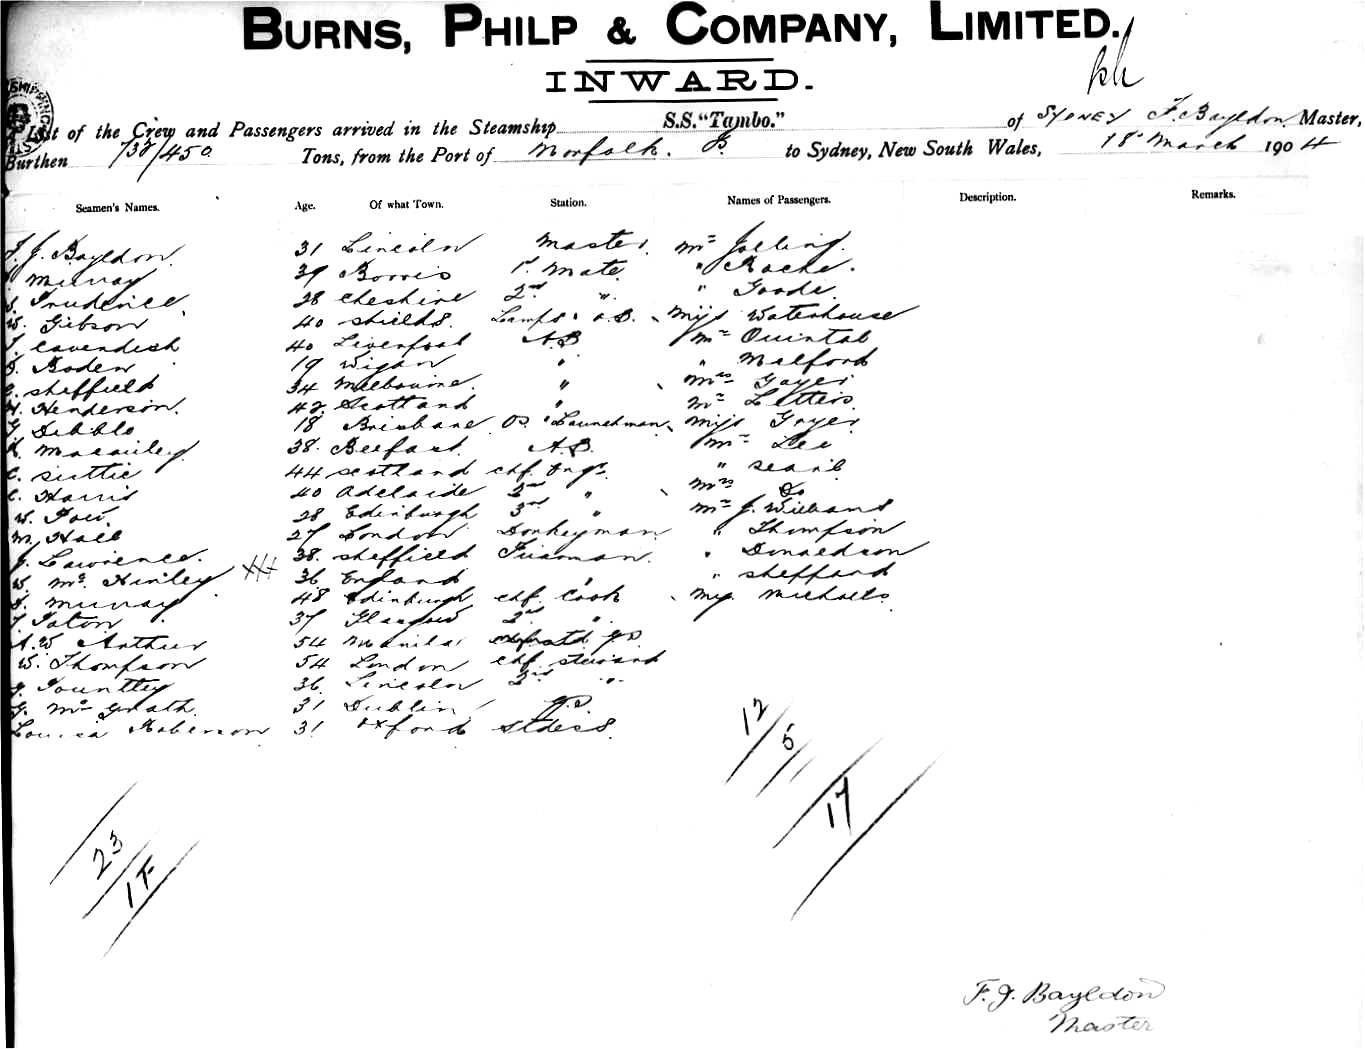 BURNS, PHILP & COMPANY, LIMITED.
INWARD.
List of the Crew and Passengers arrived in the Steamship S.S. "Tambo." of SYDNEY F. Bayldon Master,
Burthen 732/450 Tons, from the Port of Norfolk. I. to Sydney, New South Wales, 18th March 1904
Seamen's Names. Age. Of what Town. Station. Names of Passengers. Description. Remarks.
F. J. Bayldon 31 Lincoln Master. Mr Jolling.
Murray 39 1st Mate " Roche.
Prudence 28 Cheshire 2nd " " Goode.
W. Gibson 40 Shields. Lamps & A.B. Miss Waterhouse
Cavendish 40 Liverpool A.B Mr Quintal
Boden 19 Wigan " " Melford
Sheffield 34 Melbourne. " Mrs Gayer
Henderson. 42 Scotland " Mr Letters
Dibble 18 Brisbane O.S. & Launchman Miss Gayer
Macauley 38. Belfast. A.B. Mr Lee
C. Suttie 44 Scotland chf. Engr. "
C. Harris 40 Adelaide 2nd " Mrs Do
W. 28 Edinburgh 3rd " Mr J. Williams
M. Hall 27 London Donkeyman " Thompson
J. Lawrence. 38. Sheffield Fireman. " Donaldson
W. Mc Kinley 36 England " " Sheppard
Murray 48 Edinburgh chf. Cook Miss Michaels.
37 Glasgow 2nd "
A. W Arthur 54 Manila
W. Thompson 54 London chf. Steward
36 Lincoln 2nd "
G. Mc Grath. 31 Dublin
Louisa Roberson 31 Oxford Stdess.
12/5/
17
23/1F
F. J. Bayldon
Master